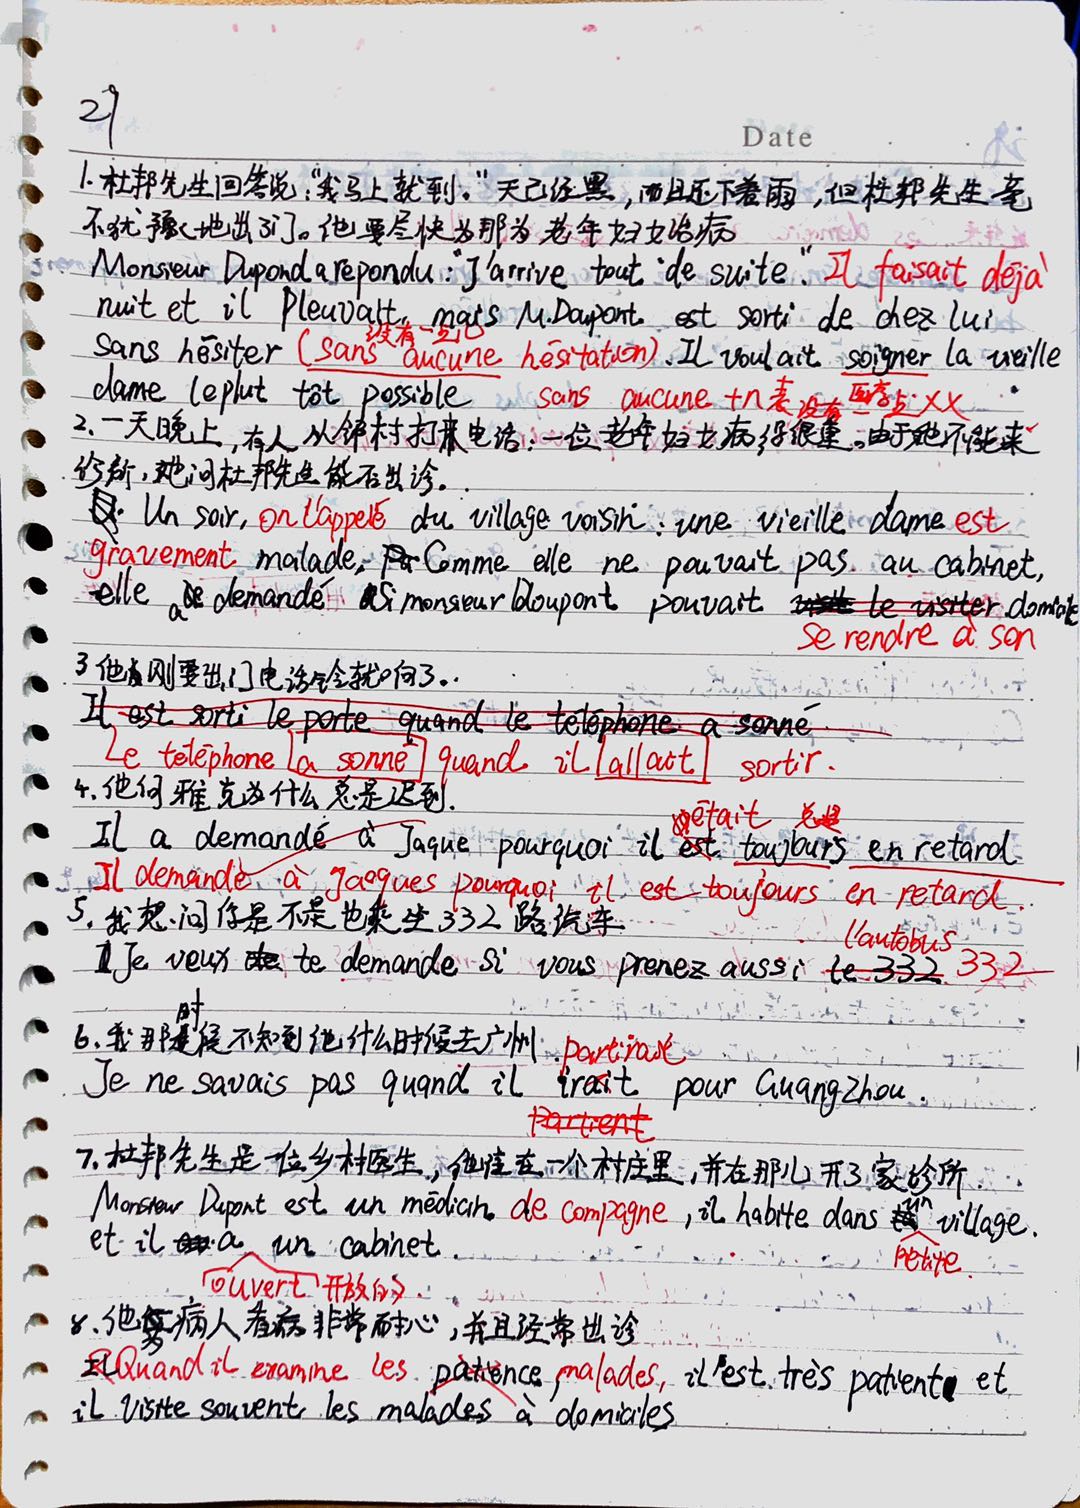 29
Date
1. 杜邦先生回答说:"我马上就到。"天已经黑,而且还下着雨,但杜邦先生毫
不犹豫地出了门。他要尽快为那为老年妇女治病
Monsieur Dupond a repondu: "J'arrive tout de suite". Il faisait déjà
nuit et il pleuvait, mais M. Dupont est sorti de chez lui
没有一点儿
sans hésiter (sans aucune hésitation). Il voulait soigner la vieille
dame leplut tôt possible sans aucune +n 表没有一点XX
2. 一天晚上,有人从邻村打来电话,一位老年妇女病得很重。由于她不能来
诊所,她问杜邦先生能否出诊。
Un soir, on l'appelé du village voisin: une vieille dame est
gravement malade. Comme elle ne pouvait pas au cabinet,
elle a demandé si monsieur Doupont pouvait le visiter domicile
se rendre à son
3 他刚要出门电话铃就响了..
Il est sorti le porte quand le téléphone a sonné
Le téléphone a sonné quand il allait sortir.
4. 他问雅克为什么总是迟到.
était 总是
Il a demandé à Jaque pourquoi il est toujours en retard
Il demande à Jacques pourquoi il est toujours en retard.
5. 我想问你是不是也乘坐332路汽车
l'autobus
Je veux te demande si vous prenez aussi le 332 332
时
6. 我那候不知到他什么时候去广州
partirait
Je ne savais pas quand il irait pour GuangZhou.
partient
7. 杜邦先生是一位乡村医生,他住在一个村庄里,并在那儿开了家诊所
Monsieur Dupont est un médicin de compagne, il habite dans un village.
et il a un cabinet.
petite
ouvert 开放的
8. 他为病人看病非常耐心,并且经常出诊
Quand il examine les patience malades, il est très patient et
il visite souvent les malades à domiciles